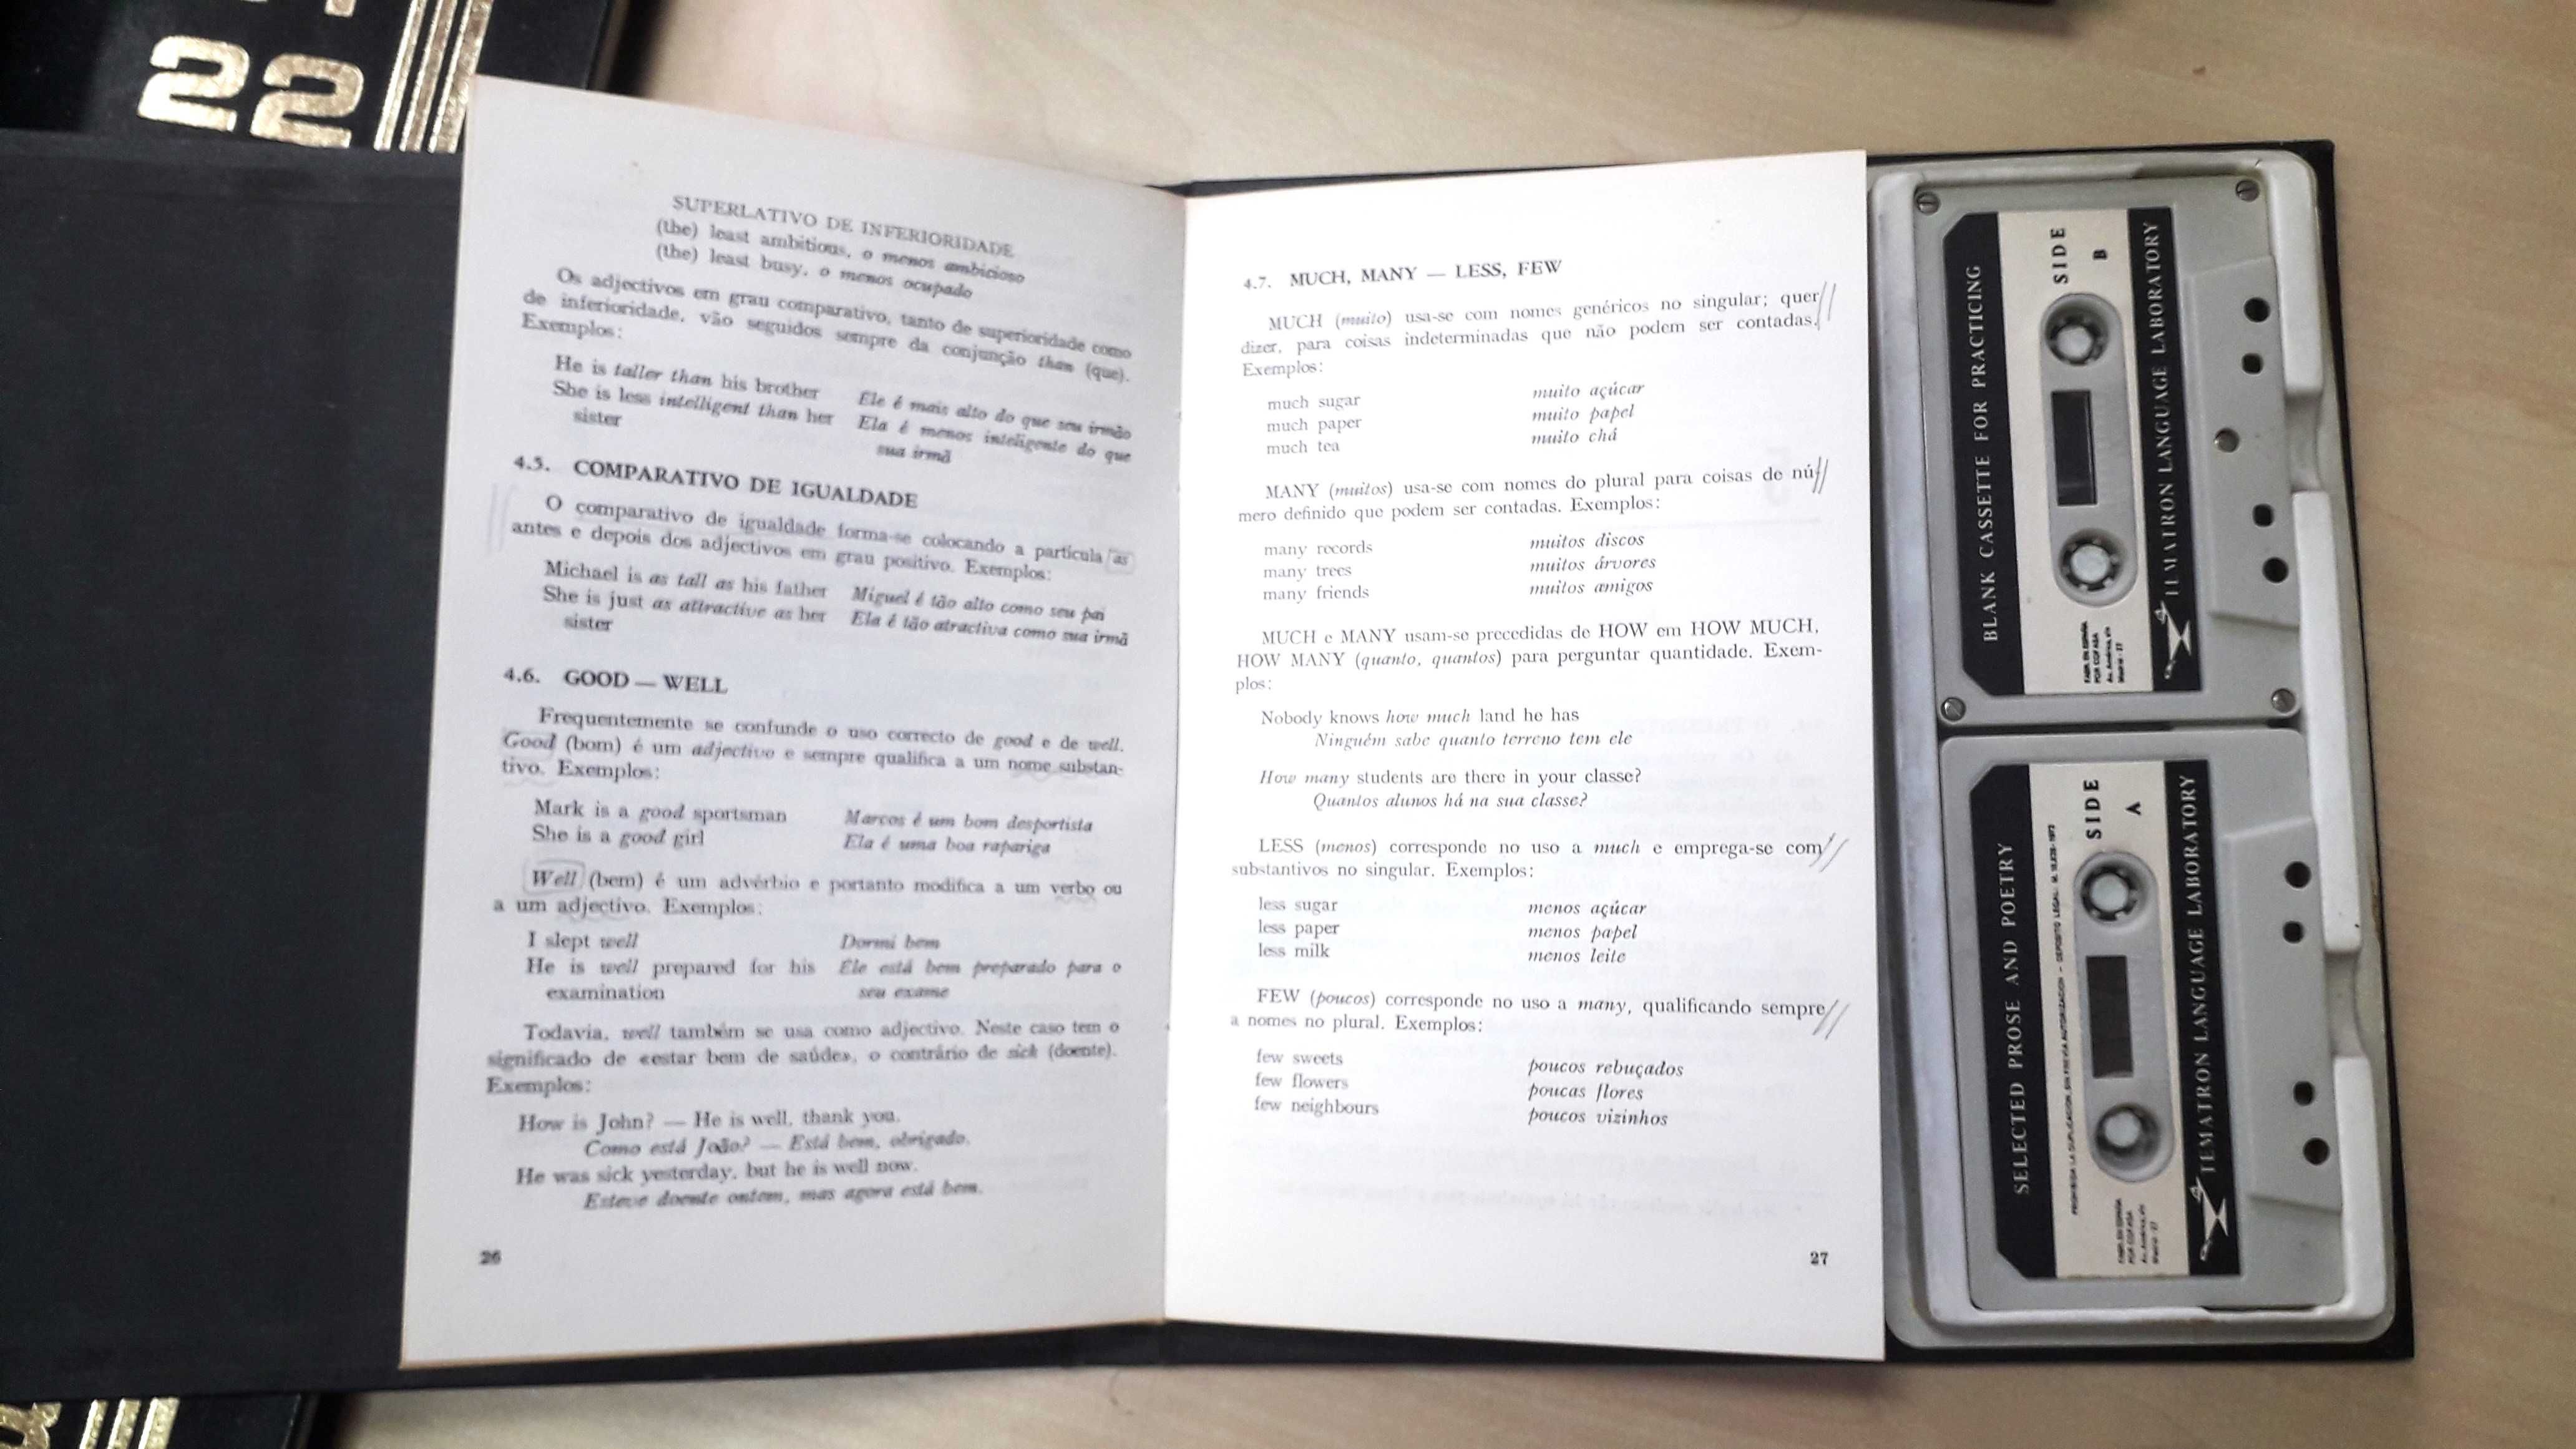 22
SUPERLATIVO DE INFERIORIDADE
(the) least ambitious, o menos ambicioso
(the) least busy, o menos ocupado
Os adjectivos em grau comparativo, tanto de superioridade como
de inferioridade, vão seguidos sempre da conjunção than (que).
Exemplos:
He is taller than his brother Ele é mais alto do que seu irmão
She is less intelligent than her Ela é menos inteligente do que
sister sua irmã
4.5. COMPARATIVO DE IGUALDADE
O comparativo de igualdade forma-se colocando a partícula as
antes e depois dos adjectivos em grau positivo. Exemplos:
Michael is as tall as his father Miguel é tão alto como seu pai
She is just as attractive as her Ela é tão atractiva como sua irmã
sister
4.6. GOOD — WELL
Frequentemente se confunde o uso correcto de good e de well.
Good (bom) é um adjectivo e sempre qualifica a um nome substan-
tivo. Exemplos:
Mark is a good sportsman Marcos é um bom desportista
She is a good girl Ela é uma boa rapariga
Well (bem) é um advérbio e portanto modifica a um verbo ou
a um adjectivo. Exemplos:
I slept well Dormi bem
He is well prepared for his Ele está bem preparado para o
examination seu exame
Todavia, well também se usa como adjectivo. Neste caso tem o
significado de «estar bem de saúde», o contrário de sick (doente).
Exemplos:
How is John? — He is well, thank you.
Como está João? — Está bem, obrigado.
He was sick yesterday, but he is well now.
Esteve doente ontem, mas agora está bem.
26
4.7. MUCH, MANY — LESS, FEW
MUCH (muito) usa-se com nomes genéricos no singular; quer
dizer, para coisas indeterminadas que não podem ser contadas.
Exemplos:
much sugar muito açúcar
much paper muito papel
much tea muito chá
MANY (muitos) usa-se com nomes do plural para coisas de nú-
mero definido que podem ser contadas. Exemplos:
many records muitos discos
many trees muitos árvores
many friends muitos amigos
MUCH e MANY usam-se precedidas de HOW em HOW MUCH,
HOW MANY (quanto, quantos) para perguntar quantidade. Exem-
plos:
Nobody knows how much land he has
Ninguém sabe quanto terreno tem ele
How many students are there in your classe?
Quantos alunos há na sua classe?
LESS (menos) corresponde no uso a much e emprega-se com
substantivos no singular. Exemplos:
less sugar menos açúcar
less paper menos papel
less milk menos leite
FEW (poucos) corresponde no uso a many, qualificando sempre
a nomes no plural. Exemplos:
few sweets poucos rebuçados
few flowers poucas flores
few neighbours poucos vizinhos
27
BLANK CASSETTE FOR PRACTICING
SIDE
B
FABR. EN ESPAÑA
POR COFASA
Av. América, s/n
Madrid - 27
TEMATRON LANGUAGE LABORATORY
SELECTED PROSE AND POETRY
PROHIBIDA LA DUPLICACION SIN PREVIA AUTORIZACION - DEPOSITO LEGAL:
SIDE
A
FABR. EN ESPAÑA
POR COFASA
Av. América, s/n
Madrid - 27
TEMATRON LANGUAGE LABORATORY